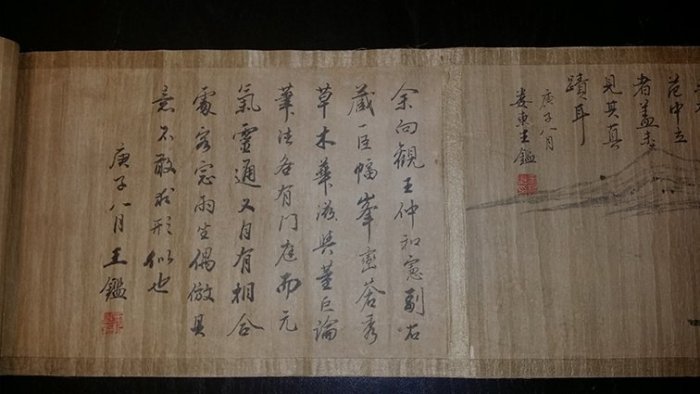 范中立
者盖未
見其真
蹟耳
庚子八月
婁東王鑑
余向觀王仲和憲副所
藏一巨幅峯巒蒼秀
草木華滋與董巨論
筆法各有门庭而元
氣靈通又自有相合
處客窓雨坐偶倣其
意不敢求形似也
庚子八月王鑑